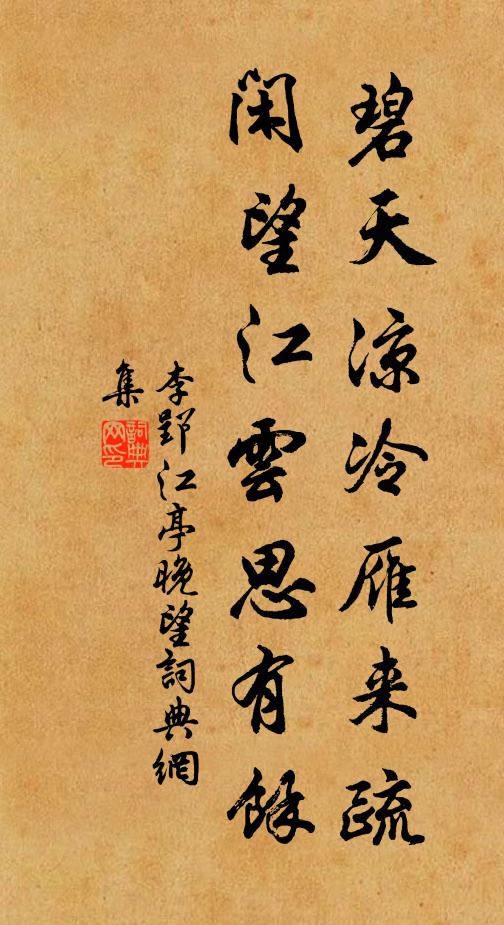 碧天凉冷雁来疏
闲望江雲思有餘
李郢江亭晚望詞典網
集
詞典網印